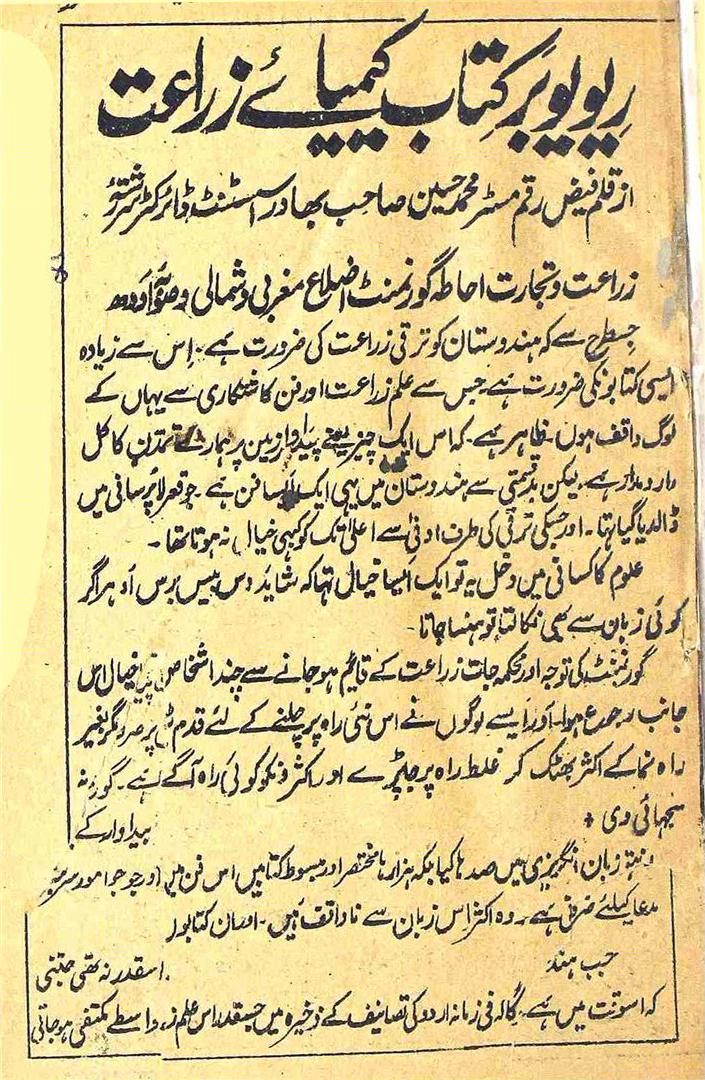 ریویو بر کتاب کیمیائے زراعت
از قلم فیض رقم مسٹر محمد حسین صاحب بہادر اسسٹنٹ ڈائرکٹر سررشتہ
زراعت و تجارت احاطہ گورنمنٹ اضلاع مغربی و شمالی و صوبہ اودھ
جسطرح سے کہ ہندوستان کو ترقی زراعت کی ضرورت ہے۔ اس سے زیادہ
ایسی کتابونکی ضرورت ہے جس سے علم زراعت اور فن کاشتکاری سے یہاں کے
لوگ واقف ہوں۔ ظاہر ہے۔ کہ اس ایک چیز یعنے پیداوار زمین پر ہمارے تمدن کا کل
دارومدار ہے۔ لیکن بدقسمتی سے ہندوستان میں یہی ایک ایسا فن ہے۔ جو قعر لاپرسانی میں
ڈالدیا گیا تہا۔ اور جسکی ترقی کی طرف ادنیٰ سے اعلیٰ تک کو کبھی خیال نہ ہوتا تھا۔
علوم کا کسانی میں دخل یہ تو ایک ایسا خیال تہا کہ شاید دس بیس برس اُدھر اگر
کوئی زبان سے بھی نکالتا تو ہنسا جاتا۔
گورنمنٹ کی توجہ اور محکمہ جات زراعت کے قایم ہو جانے سے چند اشخاص خیال اس
جانب رجوع ہوا۔ اور ایسے لوگوں نے اس نئی راہ پر چلنے کے لئے قدم مگر بغیر
راہ نما کے اکثر بھٹک کر غلط راہ پر جا پڑے اور اکثر ونکو کوئی راہ آگے
سجھائی دی +
پیداوار کے
زبان انگریزی میں صدہا کیا بلکہ ہزارہا مختصر اور مبسوط کتابیں اس فن میں اور جو جو امور
مدعا کیلئے ہے۔ وہ اکثر اس زبان سے ناواقف ہیں۔ اور ان
ہند
اسقدر نہ تھی جتنی
کہ اسوقت میں ہے۔ گا لہ فی زمانہ اردو کی تصانیف کے ذخیرہ میں جسقدر اس علم واسطے مکتفی ہو جاتی